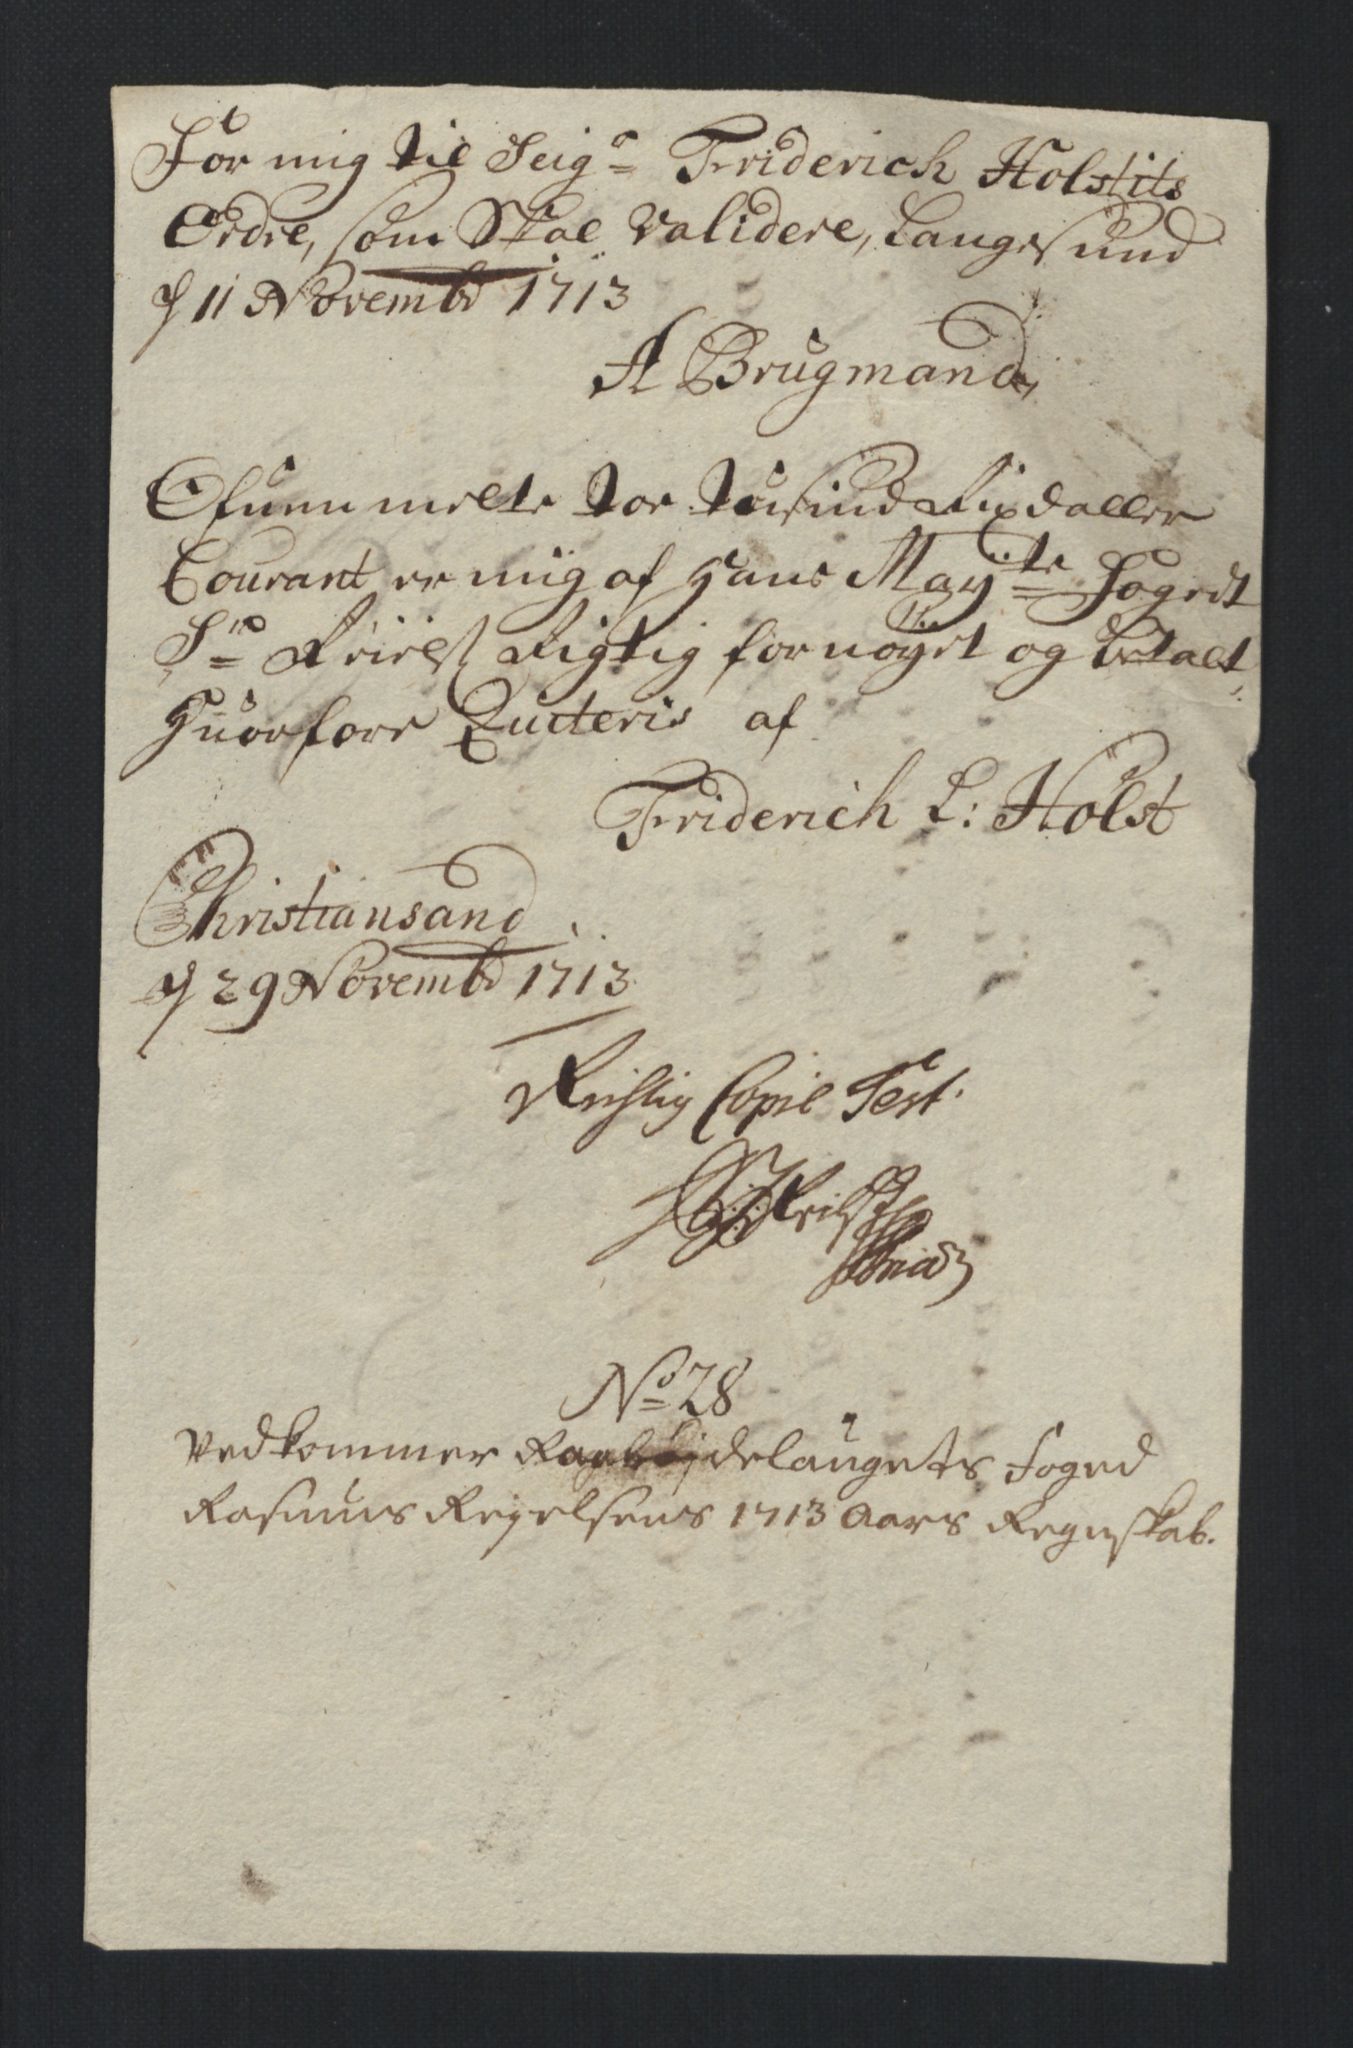 For mig til Seigr Friderich Holst its
Ordre, som Skal Validere, Langesund
d 11 Novembr 1713
A Brugmand
Ofuenmelte toe tüsind Rixdaller
Courant er mig af Hans Mayts Fogedt
Sr Reiels Rigtig fornøyet og betalt,
Huorfore Quiteris af
Friderich L: Holst
Christiansand
d 29 Novembr 1713
Rigtig Copie Test.
No 28
Vedkommer Raabøjdelaugets foged
Rasmus Regelsens 1713 Aars Regnskab.